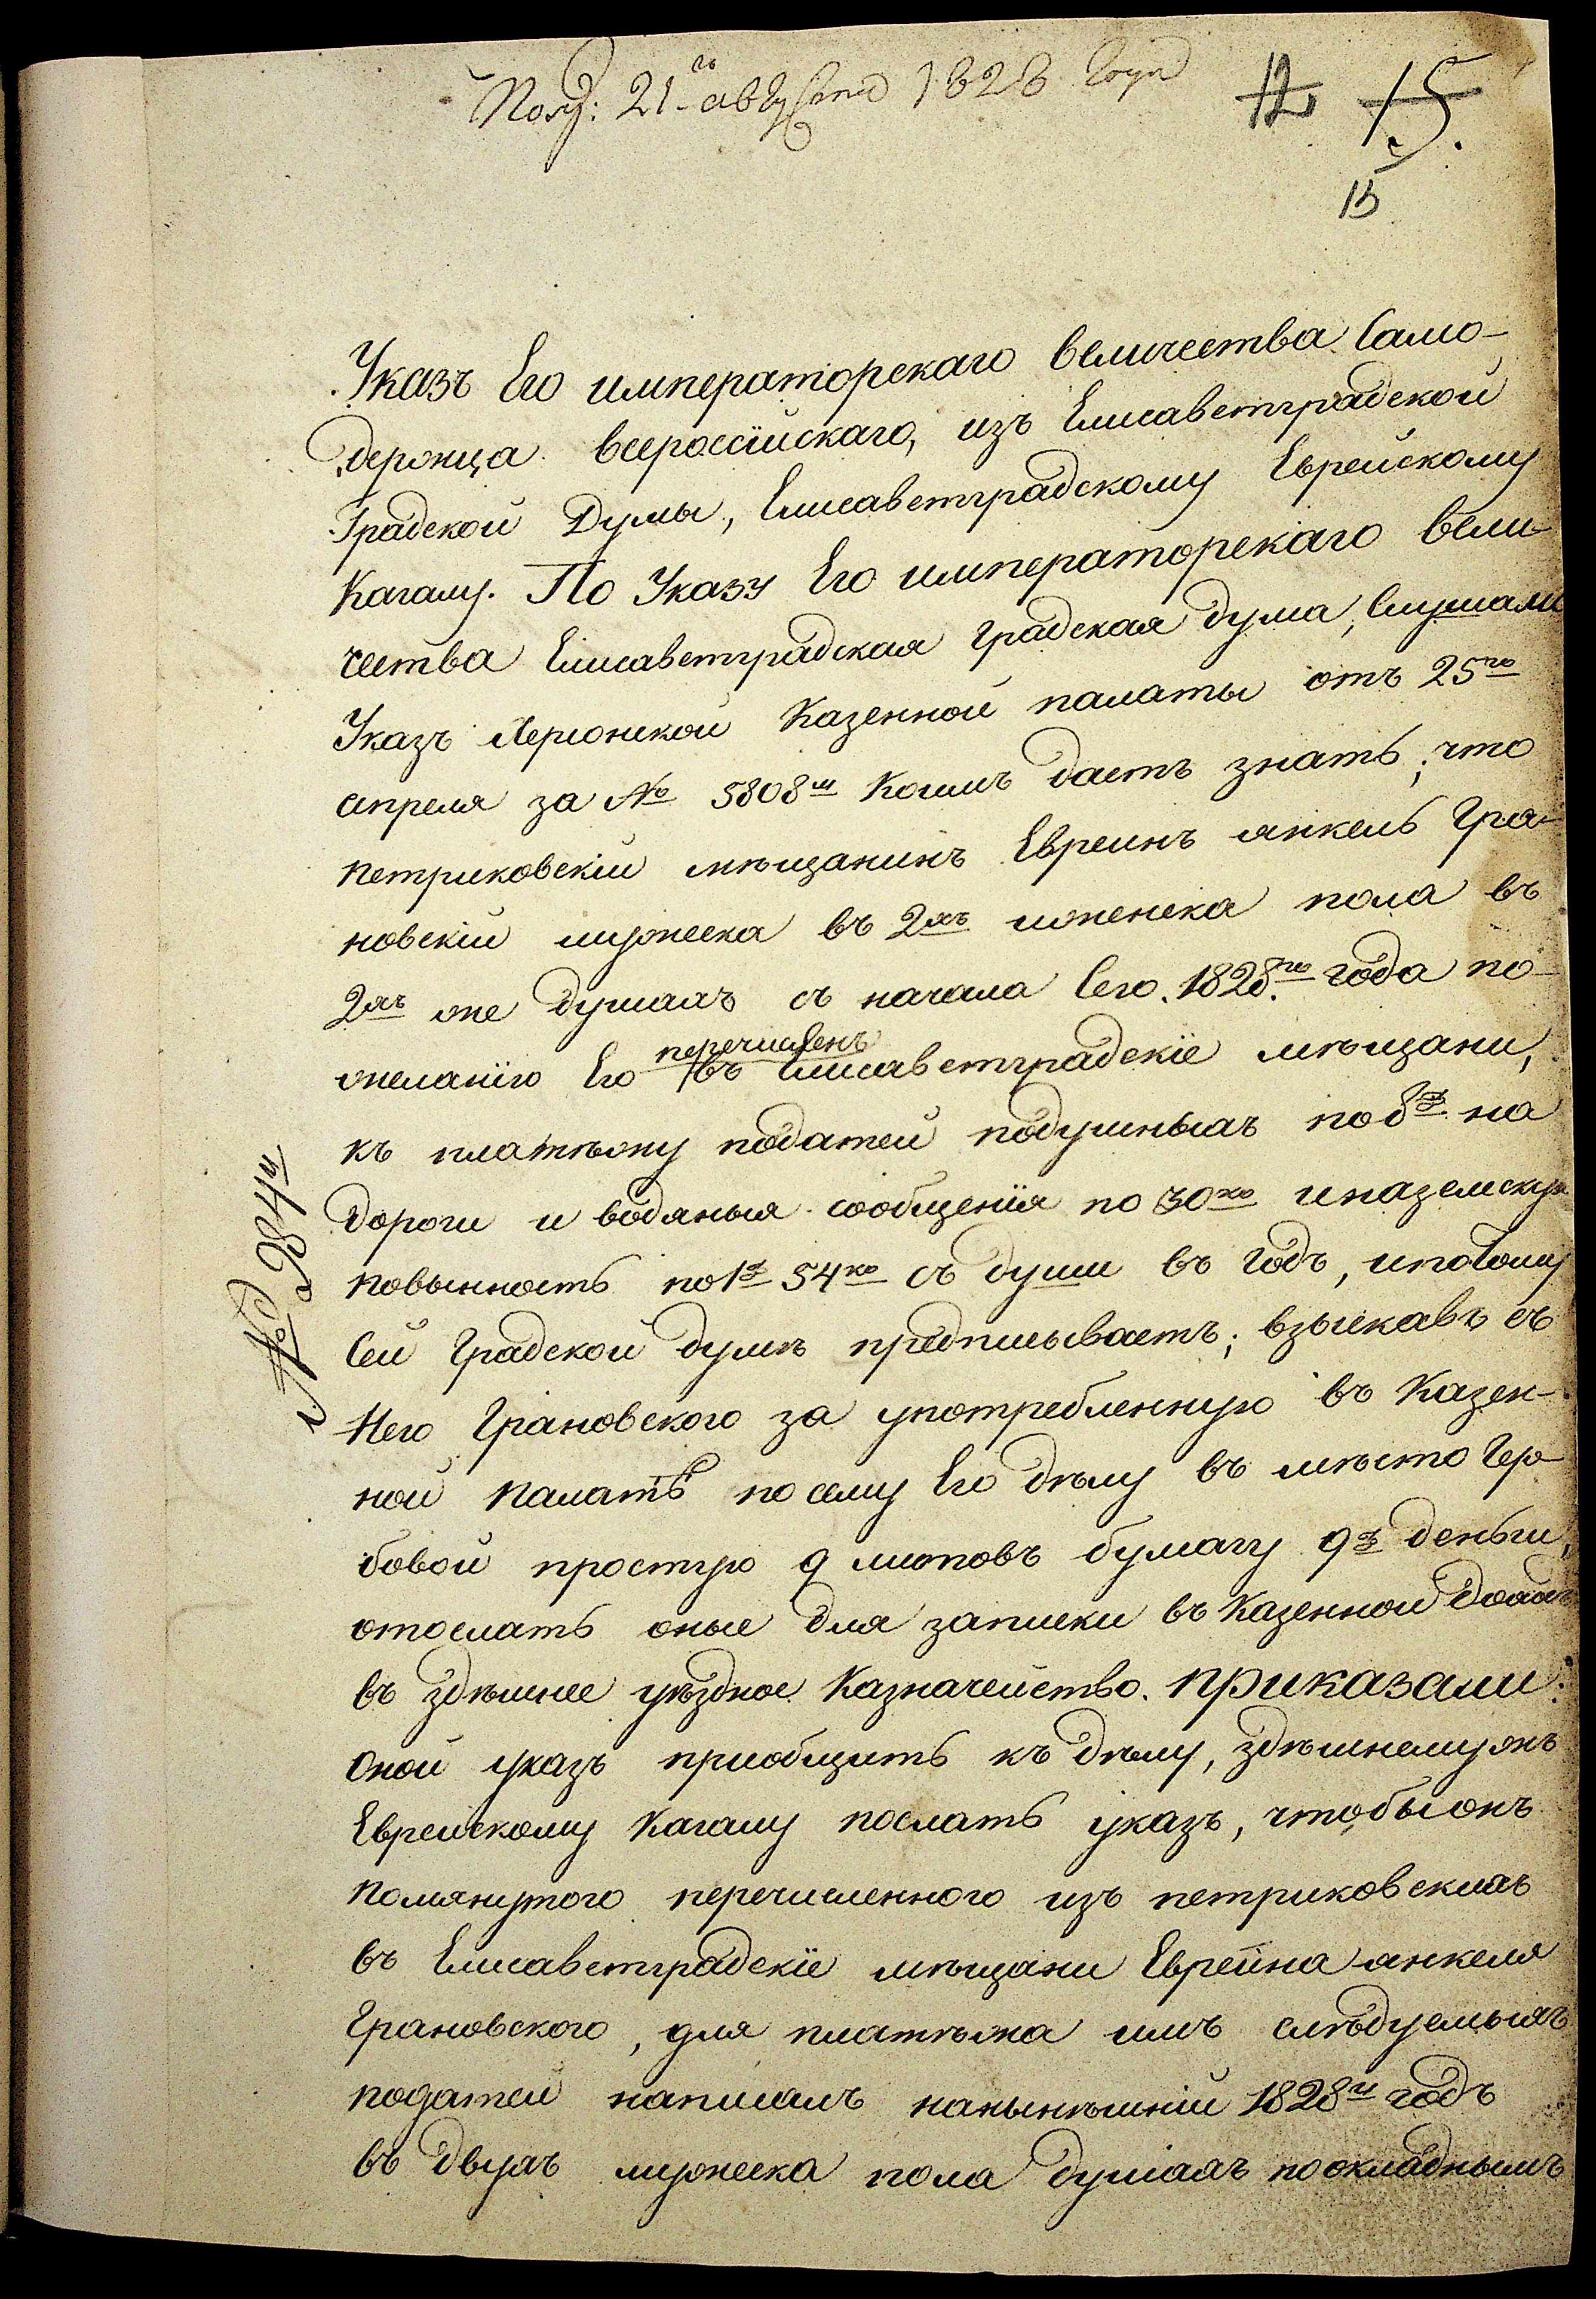 Полу: 21го августа 1828 года
12 15.
15
Указъ Его императорскаго величества Само-
держца всероссійскаго, изъ Елисаветградской
Градской Думы, Елисаветградскому Еврейскому
Кагалу. По Указу Его императорскаго вели
чества Елисаветградская градская дума, Слушали
Указъ Херсонской Казенной палаты отъ 25го
апреля за № 5808м коимъ даетъ знать, что
петриковскій мѣщанинъ Евреинъ янкель Гра-
новскій мужеска въ 2хъ и женска пола въ
2хъ же душахъ съ начала Сего. 1828.го года по
желанію Его перечисленъ въ Елисаветградскіе мѣщани,
къ платѣжу податей подушныхъ по 8р на
дороги и водяныя сообщенія по 30ко и на земскую
повынность по 1р 54ко съ души въ годъ, и потому
Сей градской думѣ предписываетъ; взыскавъ съ
Него Грановского за употребленную въ Казен-
ной палатѣ по сему Его дѣлу въ мѣсто Гер-
бовой простую 9 листовъ бумагу 9р деньги,
отослать оные для записки въ Казенной доходъ
въ здѣшнее уѣздное Казначейство. приказали:
оной указъ приобщить къ дѣлу, здѣшнемужъ
Еврейскому Кагалу послать указъ, чтобы онъ
помянутого перечисленного изъ петриковскихъ
въ Елисаветградскіе мѣщани Евреина янкеля
Грановского, для платѣжа имъ слѣдуемыхъ
податей написалъ на нынѣшній 1828й годъ
въ двухъ мужеска пола душахъ по окладнымъ
№ 2384й